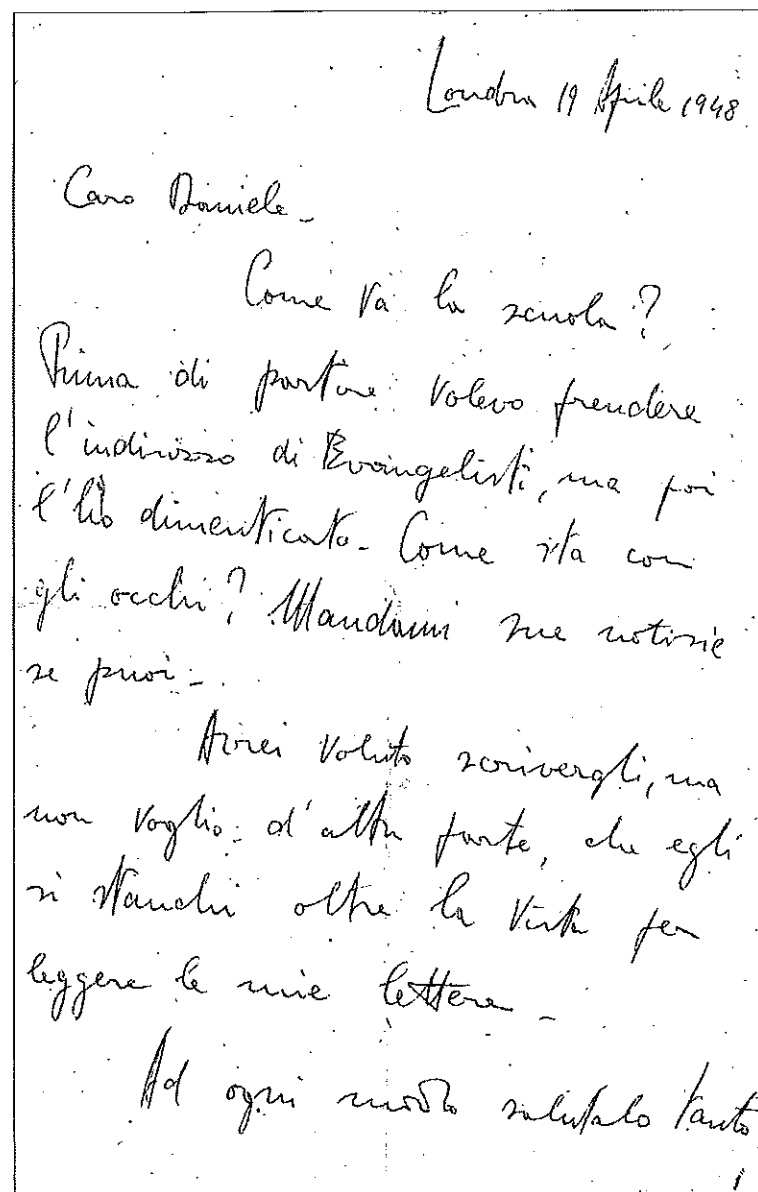 Londra 19 Aprile 1948
Caro Daniele_
Come va la scuola?
Prima di partire volevo prendere
l'indirizzo di Evangelisti, ma poi
l'ho dimenticato_ Come sta con
gli occhi? Mandami sue notizie
se puoi_
Avrei voluto scrivergli, ma
non voglio d'altra parte, che egli
si stanchi oltre la vista per
leggere le mie lettere_
Ad ogni modo salutalo tanto